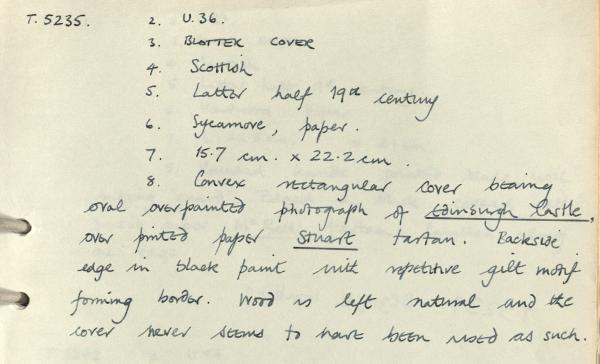 T.5235. 2. U.36.
3. BLOTTER COVER
4. Scottish
5. Latter half 19th century
6. Sycamore, paper.
7. 15.7 cm. x 22.2 cm.
8. Convex rectangular cover bearing
oval overpainted photograph of Edinburgh Castle,
over printed paper Stuart tartan. Backside
edge in black paint with repetitive gilt motif
forming border. Wood is left natural and the
cover never seems to have been used as such.